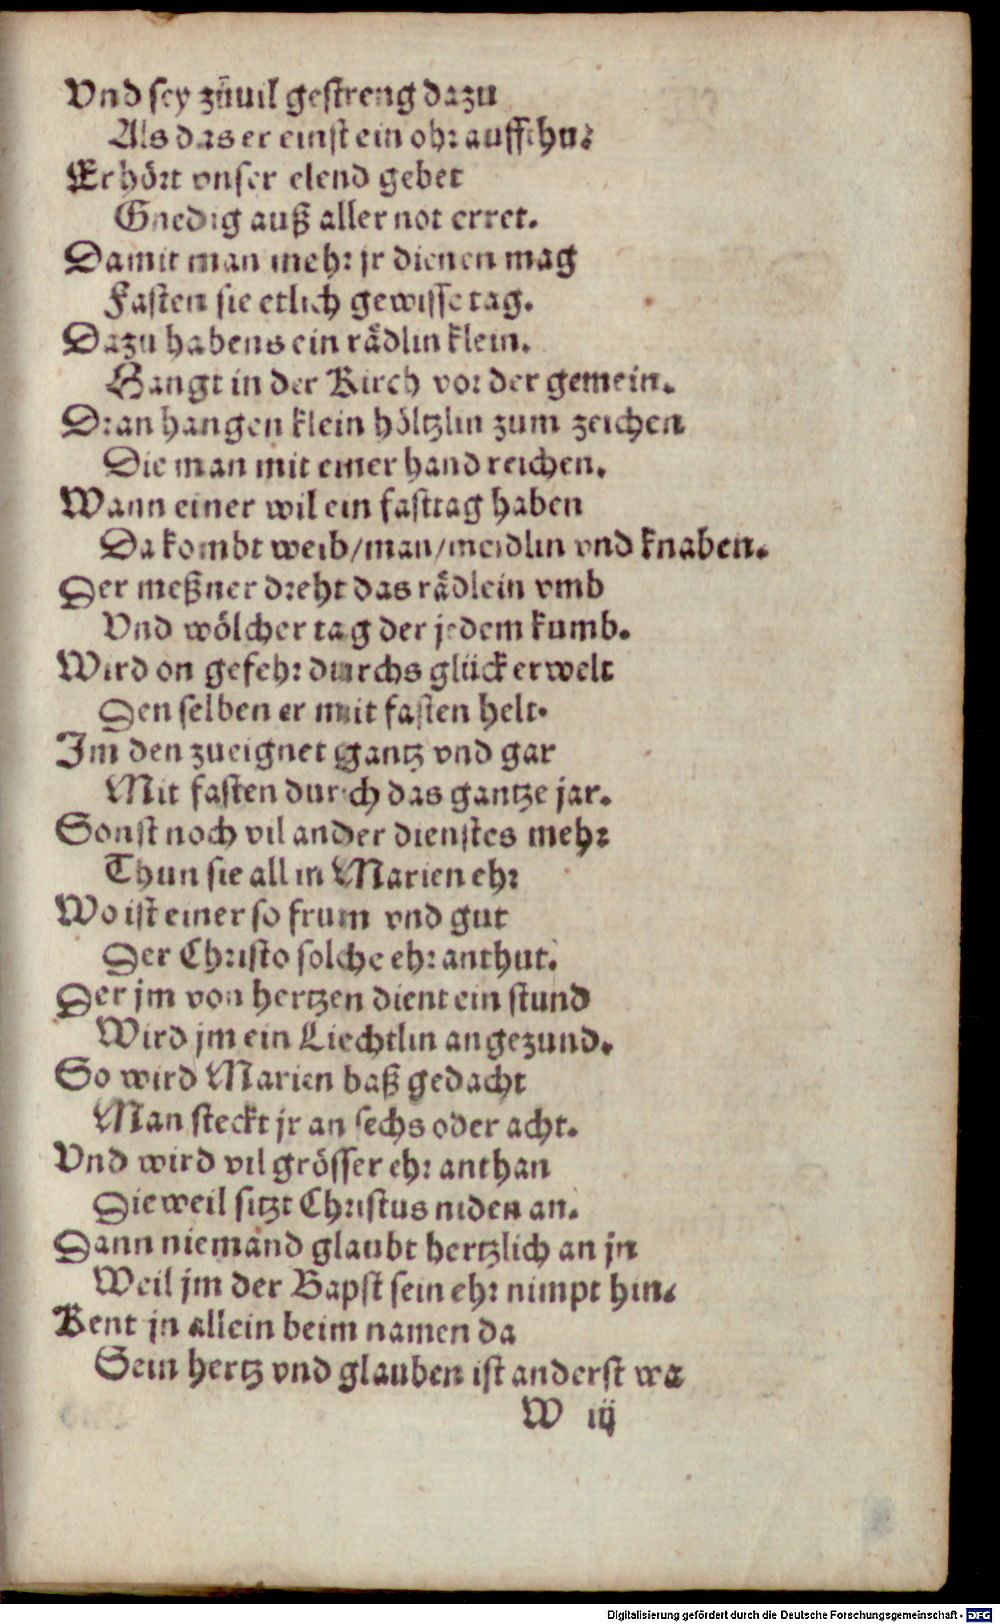 Vnd sey zůuil gestreng dazu
Als das er einst ein ohr auffthu.
Er hört vnser elend gebet
Gnedig auß aller not erret.
Damit man mehr jr dienen mag
Fasten sie etlich gewisse tag.
Dazu habens ein rädlin klein.
Hangt in der Kirch vor der gemein.
Dran hangen klein höltzlin zum zeichen
Die man mit einer hand reichen.
Wann einer wil ein fasttag haben
Da kombt weib/man/meidlin vnd knaben.
Der meßner dreht das rädlein vmb
Vnd wölcher tag der jedem kumb.
Wird on gefehr durchs glück erwelt
Den selben er mit fasten helt.
Im den zueignet gantz vnd gar
Mit fasten durch das gantze jar.
Sonst noch vil ander dienstes mehr
Thun sie all in Marien ehr
Wo ist einer so frum vnd gut
Der Christo solche ehr anthut.
Der jm von hertzen dient ein stund
Wird jm ein Liechtlin angezund.
So wird Marien baß gedacht
Man steckt jr an sechs oder acht.
Vnd wird vil grösser ehr anthan
Dieweil sitzt Christus niden an.
Dann niemand glaubt hertzlich an jn
Weil jm der Bapst sein ehr nimpt hin.
Kent jn allein beim namen da
Sein hertz vnd glauben ist anderst wa
W iij
Digitalisierung gefördert durch die Deutsche Forschungsgemeinschaft - DFG